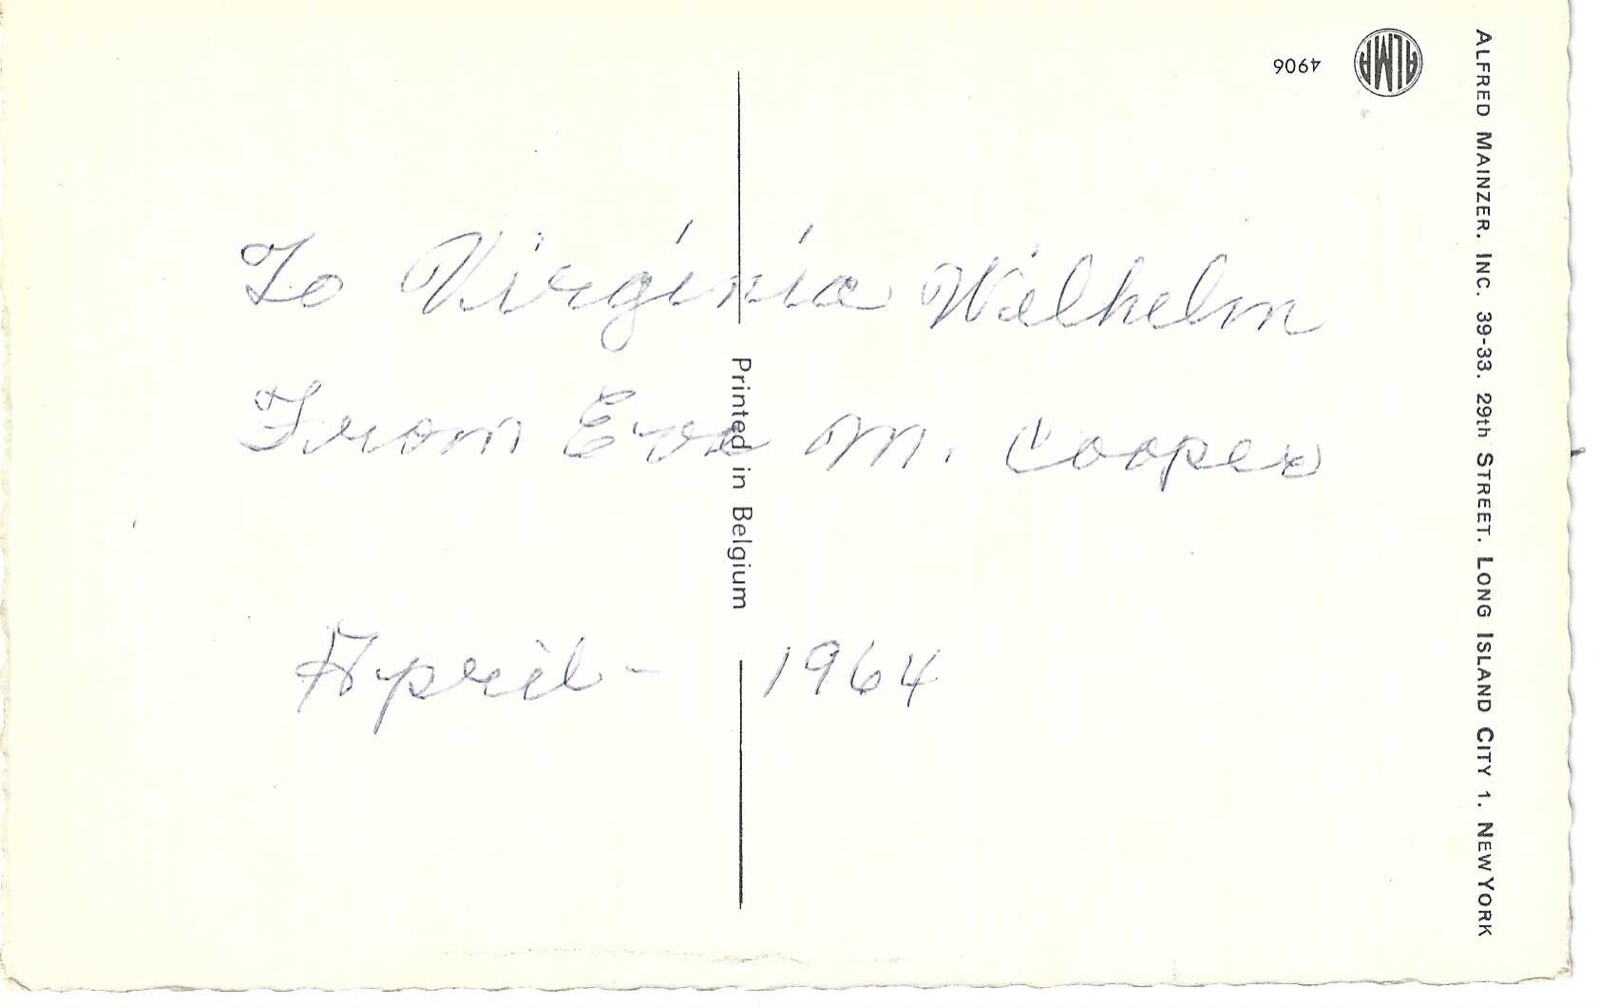 To Virginia Wilhelm
From Eva M. Cooper
April - 1964
Printed in Belgium
4906
ALMA
ALFRED MAINZER. INC. 39-33. 29th STREET. LONG ISLAND CITY 1. NEW YORK